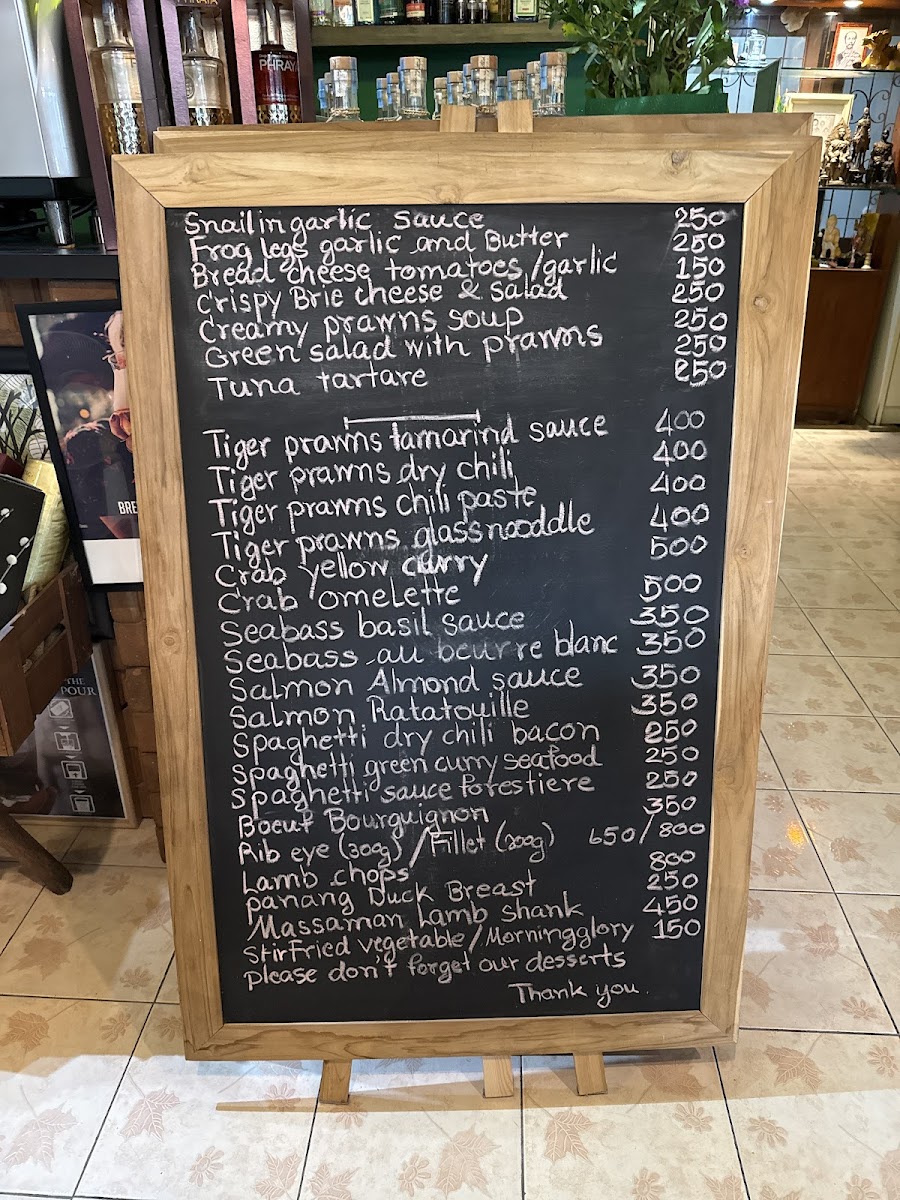 PHRAYA
PHRAYA
Snail in garlic sauce 250
Frog legs garlic and Butter 250
Bread cheese tomatoes/garlic 150
Crispy Brie cheese & salad 250
Creamy prawns soup 250
Green salad with prawns 250
Tuna tartare 250
Tiger prawns tamarind sauce 400
Tiger prawns dry chili 400
Tiger prawns chili paste 400
Tiger prawns glassnooddle 400
Crab yellow curry 500
Crab omelette 500
Seabass basil sauce 350
Seabass au beurre blanc 350
Salmon Almond sauce 350
Salmon Ratatouille 350
Spaghetti dry chili bacon 250
Spaghetti green curry seafood 250
Spaghetti sauce forestiere 250
Boeuf Bourguignon 350
Rib eye (300g)/Fillet (200g) 650/800
Lamb chops 800
panang Duck Breast 250
Massaman Lamb shank 450
StirFried vegetable/Morningglory 150
please don't forget our desserts
Thank you.
BRE
THE
POUR